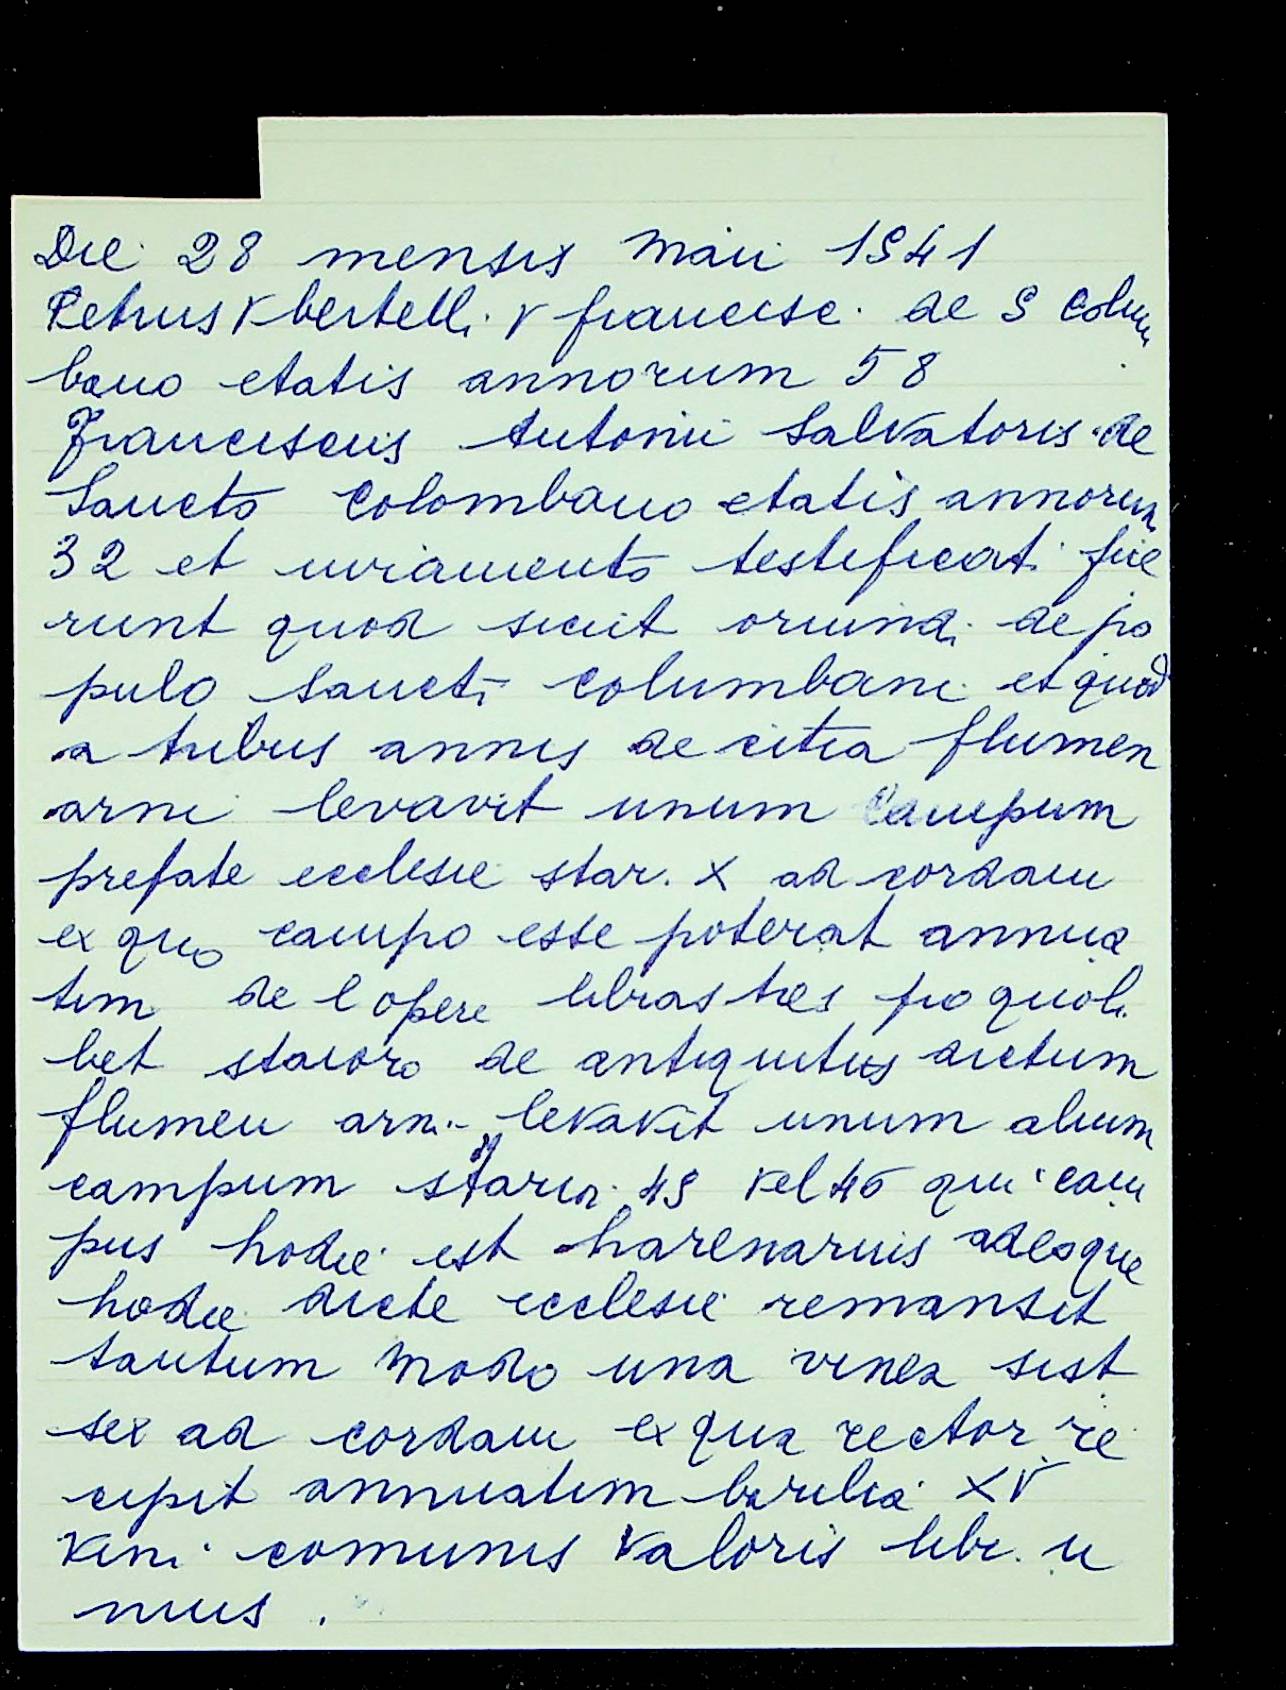 Die 28 mensis maii 1541
Petrus V bertelli V francisc. de S Colum
bano etatis annorum 58
Franciscus Antonii Salvatoris de
Sancto Colombano etatis annorum
32 et iuriamento testificati fue
runt quod sicut oriundi de po
pulo Sancti Columbani et quod
a tribus annis de citra flumen
arni levavit unum Campum
prefate ecclesie star. X ad cordam
ex quo campo esse poterat annua
tim de l opere libras tres pro quoli
bet staioro de antiquitus dictum
flumen arni levavit unum alium
campum starior. 45 vel 46 qui cam
pus hodie est harenarius adeoque
hodie dicte ecclesie remansit
tantum modo una vinea sist
sex ad cordam ex qua rector re
cipit annuatim barilia XV
vini comunis valoris libr. u
nius .